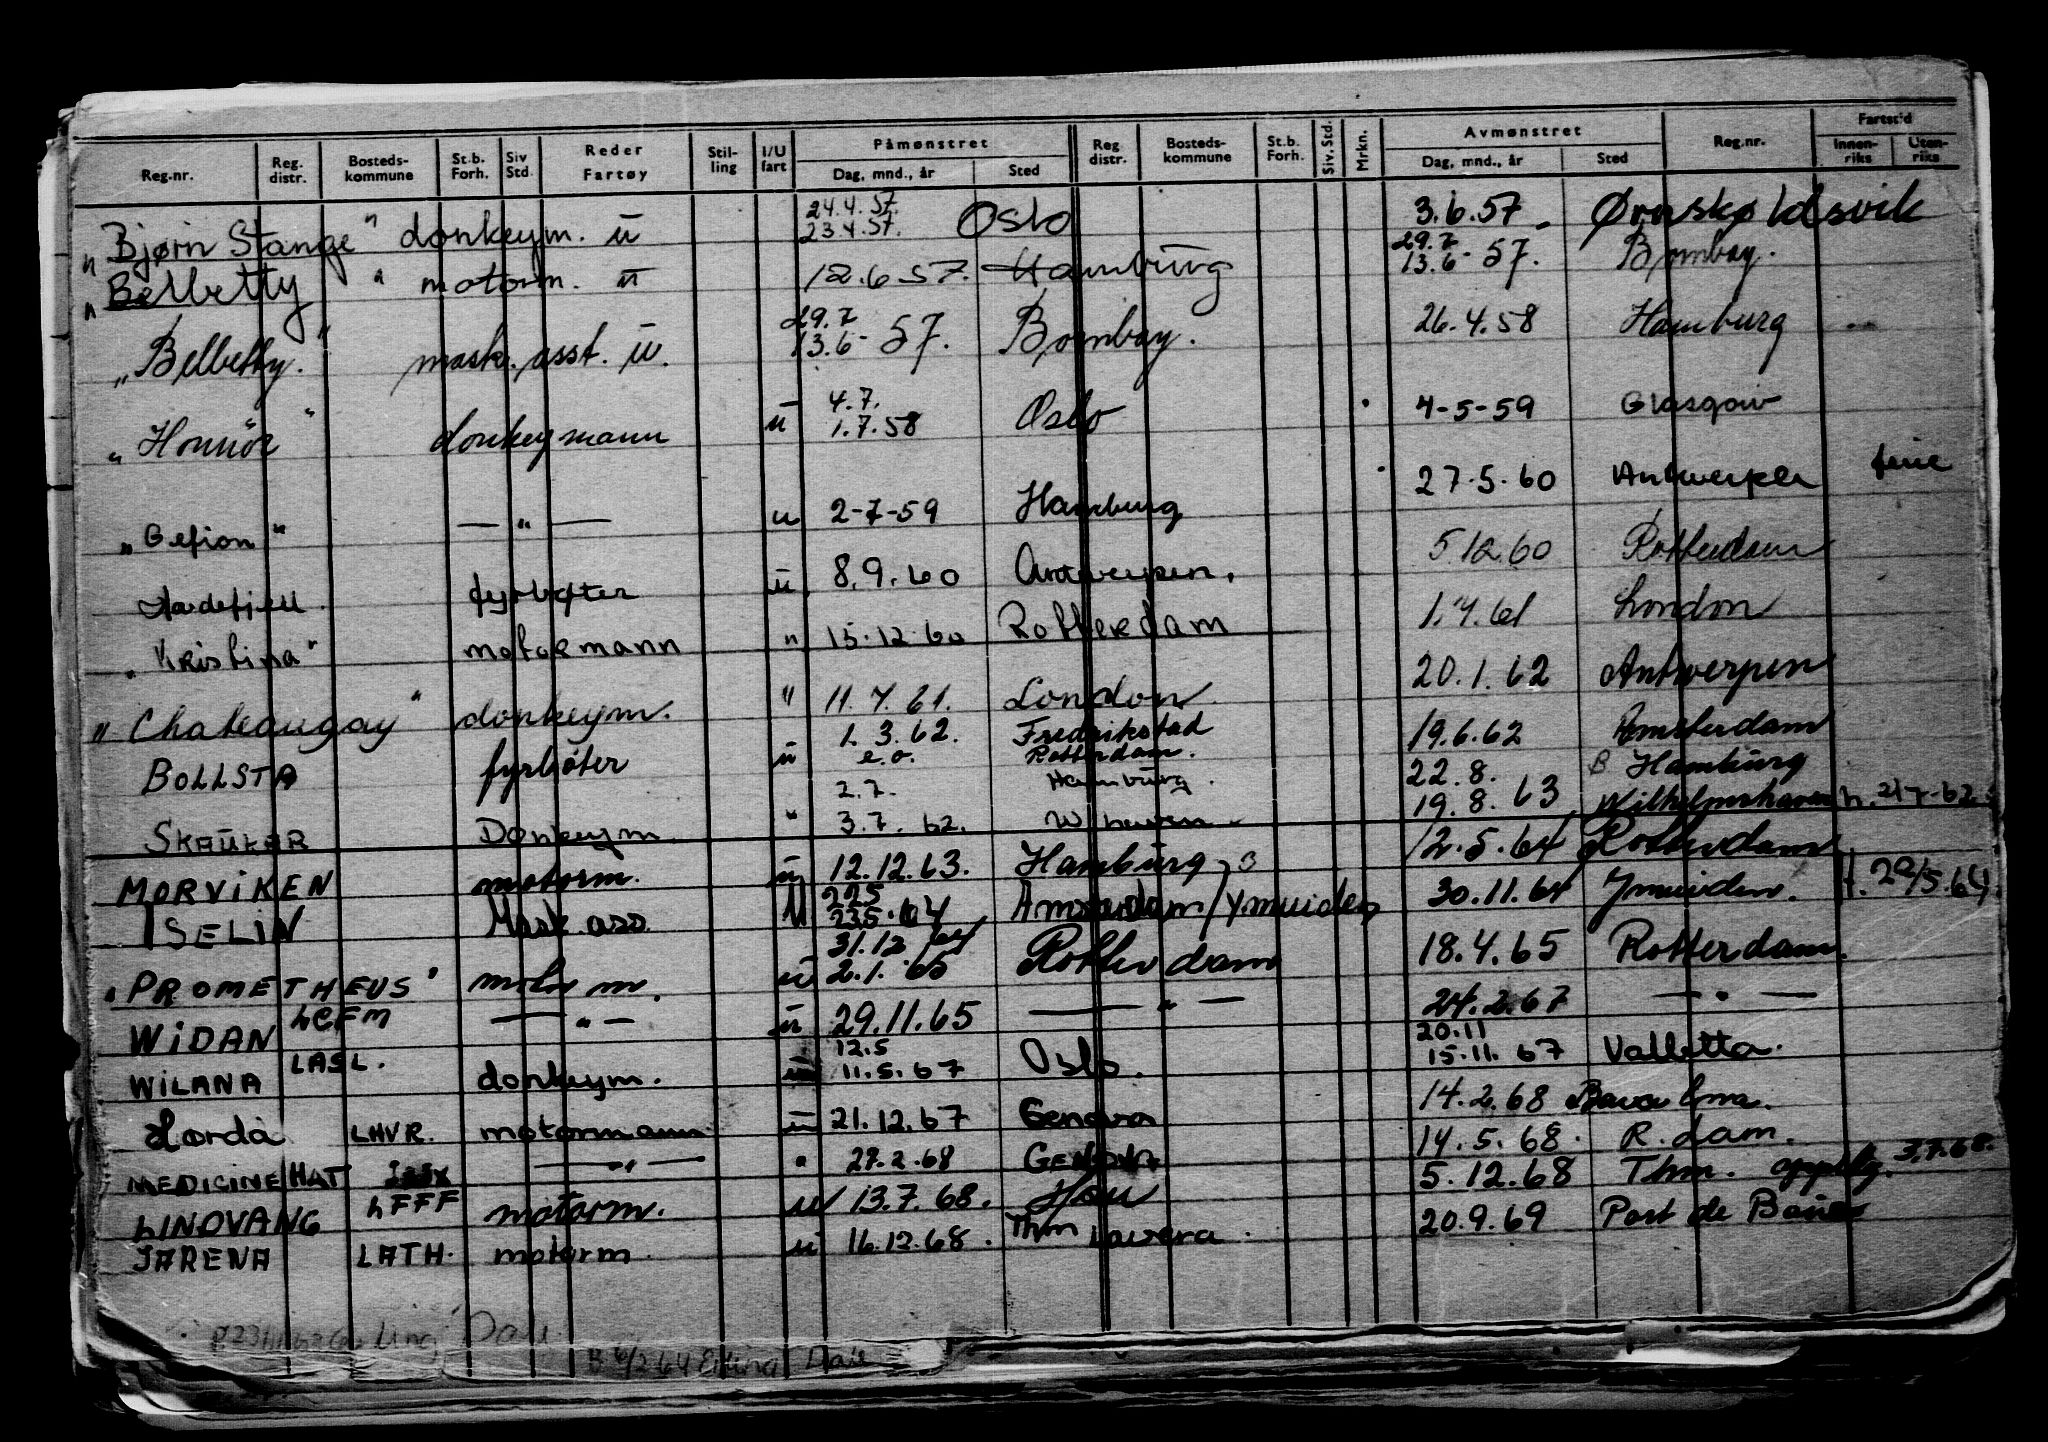 Reg.nr. Reg. distr. Bosteds-kommune St.b. Forh. Siv Std. Reder Fartøy Stil-ling I/U fart Påmønstret Dag, mnd., år Sted Reg distr. Bosteds-kommune St.b. Forh. Siv. Std. Mrkn. Avmønstret Dag, mnd., år Sted Reg.nr. Fartstid Innen-riks Uten-riks
„Bjørn Stange" donkeym. u 24.4.57. 23.4.57. Oslo 3.6.57 Ørnskøldsvik
„Belbetty " motorm. u 12.6.57. Hamburg 29.7 13.6-57. Bombay.
„Belbetty." mask. asst. u. 29.7 13.6-57. Bombay. 26.4.58 Hamburg
„Honnör" donkeymann u 4.7. 1.7.58 Oslo 4-5-59 Glasgow
„Gefion" — " — u 2-7-59 Hamburg 27.5.60 Antwerpen ferie
fyrbøter u 8.9.60 Antwerpen. 5.12.60 Rotterdam
„Kristina" motormann " 15.12.60 Rotterdam 1.7.61 London
„Chateaugay" donkeym. " 11.7.61. London 20.1.62 Antwerpen
BOLLSTA fyrbøter u 1.3.62. e.o. Fredrikstad Rotterdam. 19.6.62 Amsterdam
SKAUKAR Donkeym. " 2.7. 3.7.62. Hamburg. W haven 22.8. 19.8.63 B Hamburg Wilhelmshaven
MORVIKEN motorm. u 12.12.63. Hamburg 12.5.64 Rotterdam
ISELIN Mask. ass. U 22.5 23.5.64 Amsterdam/Ymuiden 30.11.64 Ymuiden. 29/5.64.
„PROMETHEUS" motorm. u 31.12/64 2.1.65 Rotterdam 18.4.65 Rotterdam.
WIDAN LCFM — " — u 29.11.65 — " — 24.2.67 — " —
WILANA LASL. donkeym. u 12.5 11.5.67 Oslo. 20.11 15.11.67 Valletta.
Lorda LHVR. motormann u 21.12.67 Genova 14.2.68
MEDICINE HAT — " — " 27.2.68 GENOVA 14.5.68. R.dam.
LINDVANG LFFF motorm. u 13.7.68. 5.12.68 Thm. 3.7.68.
JARENA LATH. motorm. u 16.12.68. Thm Lavera. 20.9.69 Port de